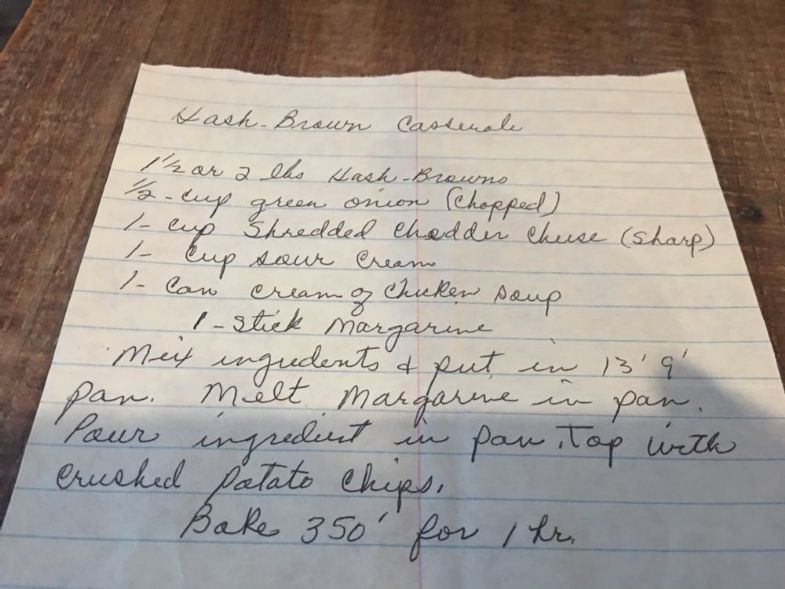 Hash-Brown Casserole
1 1/2 or 2 lbs Hash-Browns
1/2-cup green onion (chopped)
1-cup Shredded Chedder Cheese (Sharp)
1- Cup sour cream
1- Can cream of Chicken soup
1-stick Margarine
Mix ingredents & put in 13' 9'
pan. Melt Margarine in pan.
Pour ingredient in pan. Top with
crushed potato chips.
Bake 350' for 1 hr.